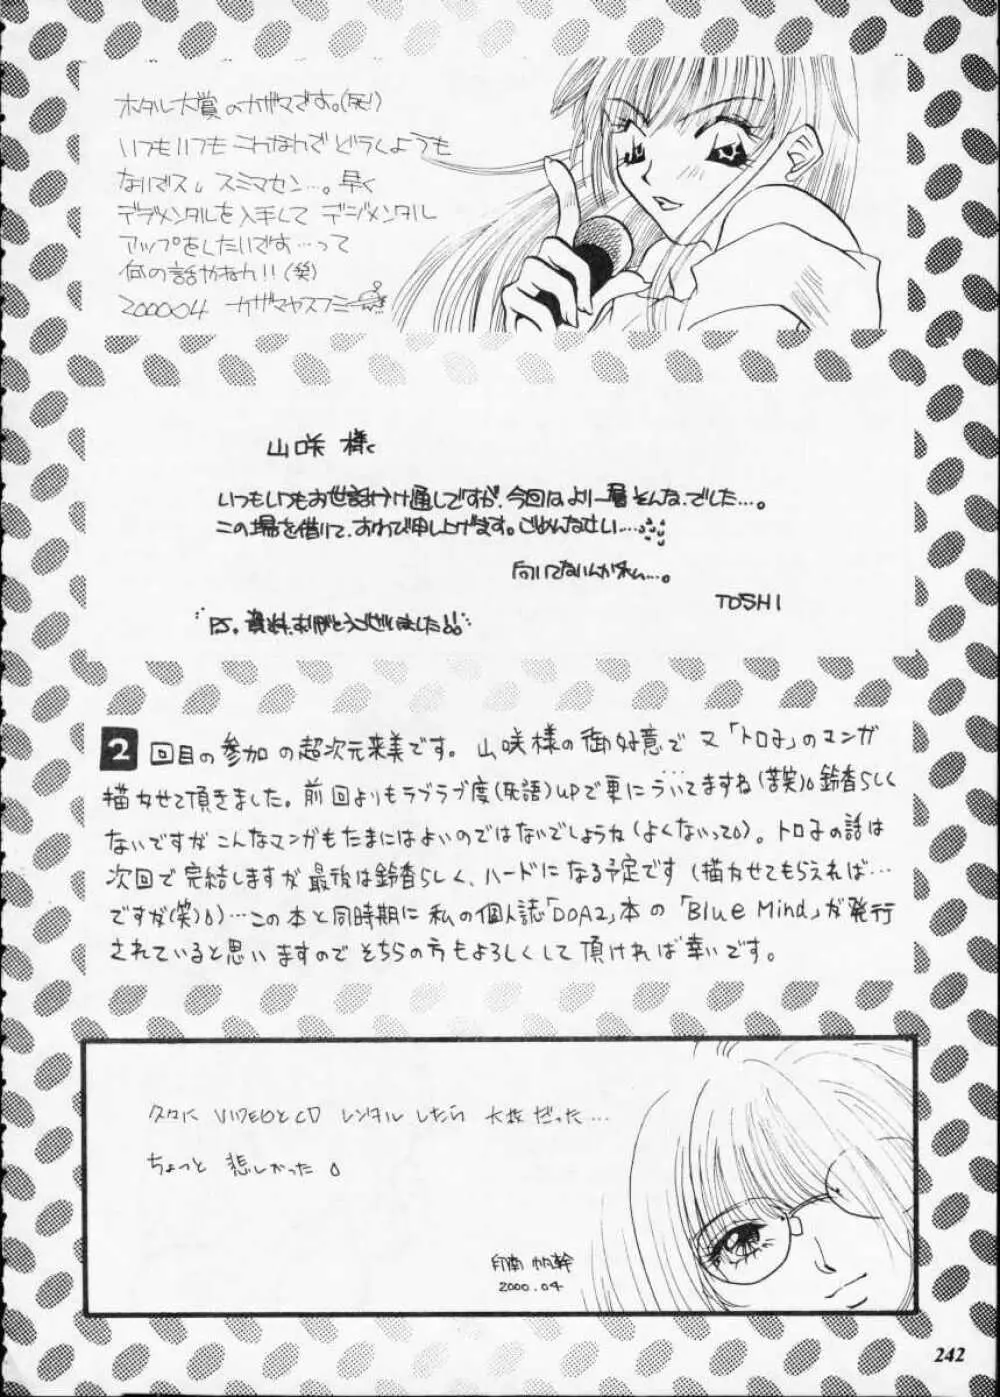 ホタル大賞のカザマです。(死!)
いつもいつもこんなんでどうしようも
ないデス。スミマセン…。早く
デヂメンタルを入手してデジメンタル
アップをしたいです…って
何の話やねん!!(笑)
2000.04 カザマヤスフミ
山咲 様
いつもいつもお世話かけ通しですが、今回はより一層そんな、でした…。
この場を借りて、おわび申し上げます。ごめんなさい…
向いてないんか私…。
TOSHI
PS. 資料、ありがとうございました!!
2 回目の参加の超次元来美です。山咲様の御好意で又「トロ子」のマンガ
描かせて頂きました。前回よりもラブラブ度(死語)UPで更にういてますね(苦笑)。鈴香らしく
ないですがこんなマンガもたまにはよいのではないでしょうね(よくないって)。トロ子の話は
次回で完結しますが最後は鈴香らしく、ハードになる予定です(描かせてもらえれば…
ですが(笑))…この本と同時期に私の個人誌「DOA2」本の「Blue Mind」が発行
されていると思いますのでそちらの方もよろしくして頂ければ幸いです。
久々に VIDEOとCD レンタルしたら 大枚だった…
ちょっと 悲しかった。
印南 帆幹
2000.04
242